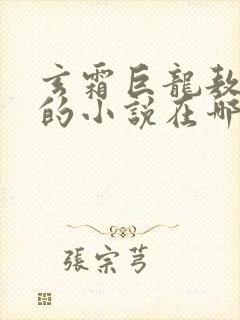 玄霜巨龍敖
的小說在哪
張宗芎